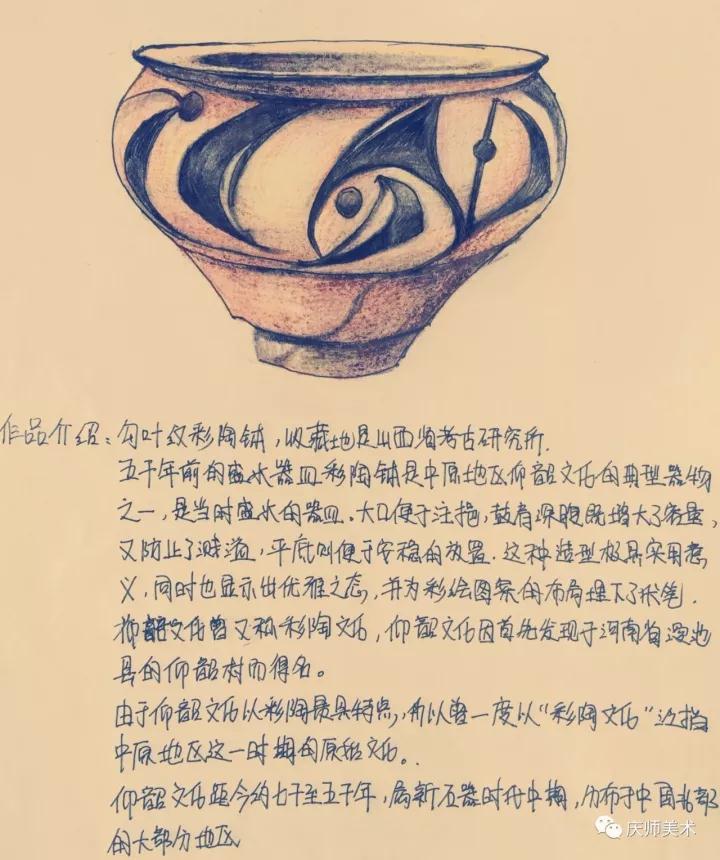 作品介绍：勾叶纹彩陶钵，收藏地是山西省考古研究所.
五千年前的盛水器皿彩陶钵是中原地区仰韶文化的典型器物
之一，是当时盛水的器皿.大口便于注挹，鼓肩深腹既增大了容量，
又防止了溅溢，平底则便于安稳的放置.这种造型极具实用意
义，同时也显示出优雅之态，并为彩绘图案的布局埋下了伏笔.
仰韶文化曾又称彩陶文化，仰韶文化因首先发现于河南省渑池
县的仰韶村而得名。
由于仰韶文化以彩陶最具特点，所以曾一度以“彩陶文化”
中原地区这一时期的原始文化。.
仰韶文化距今约七千至五千年，属新石器时代中期，分布于中国北部
的大部分地区
庆师美术